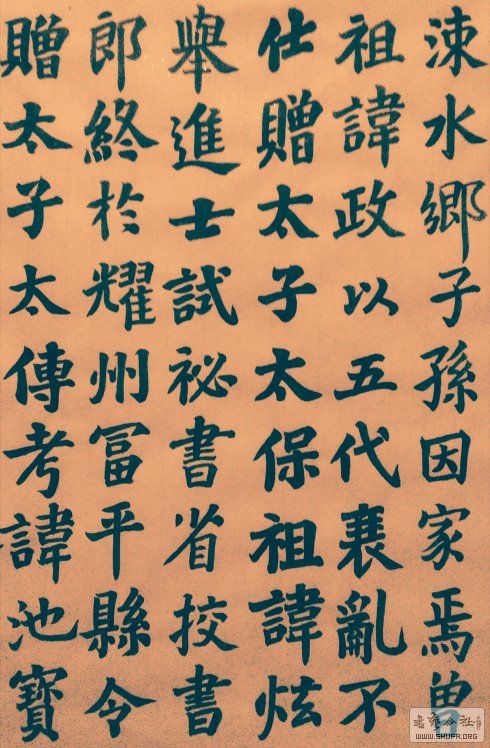 涑水鄉子孫因家焉曽
祖諱政以五代衰亂不
仕贈太子太保祖諱炫
舉進士試祕書省挍書
郎終於耀州冨平縣令
贈太子太傅考諱池寶
WWW.SHUFA.ORG